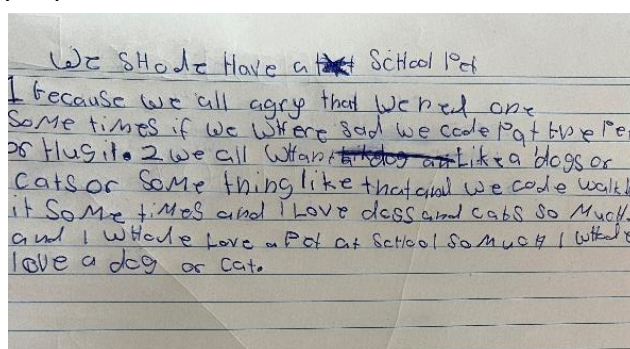 We SHode Have a School Pet
1 because we all agry that we need one
Some times if we where sad we code Pat the Pet
or Hug it. 2 we all whant Like a dogs or
cats or some thing like that and we code walk
it some times and I Love dogs and cats so much.
and I whode Love a Pet at School so much I whode
love a dog or cat.